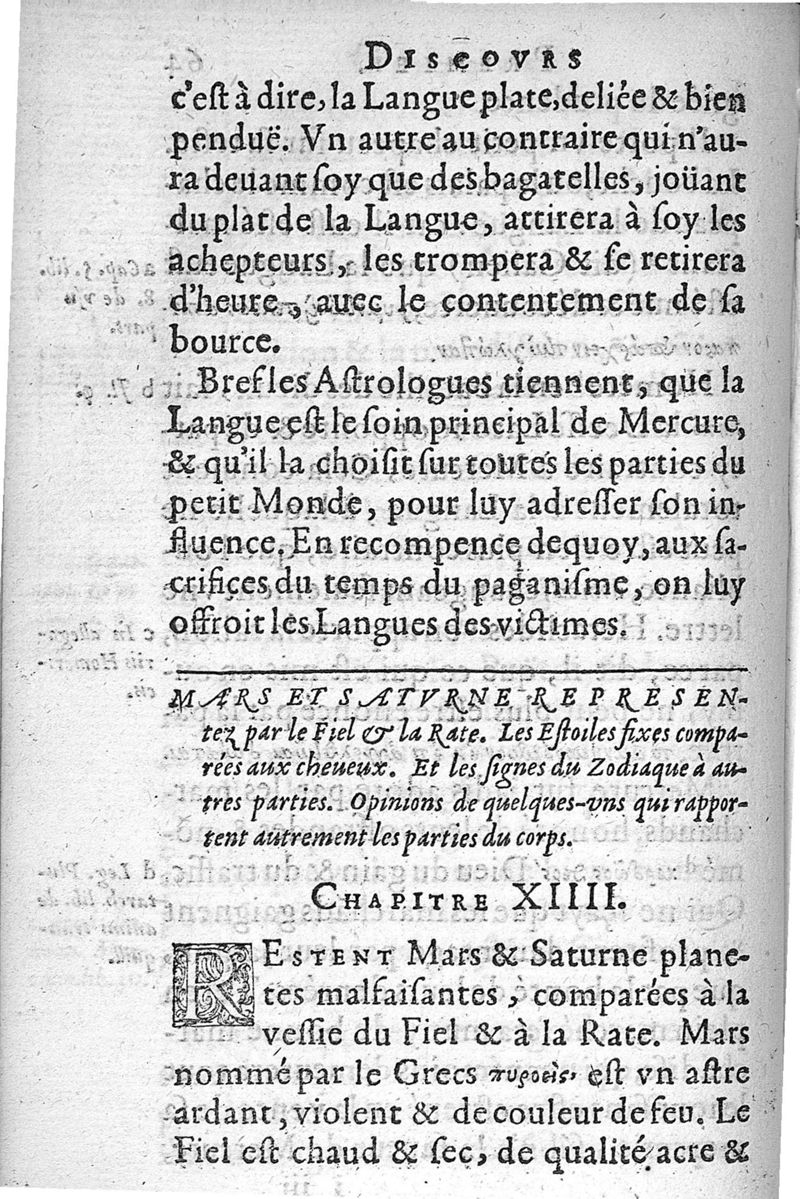 DISCOVRS
c'eſt à dire, la Langue plate, deliée & bien
penduë. Vn autre au contraire qui n'au-
ra deuant ſoy que des bagatelles, joüant
du plat de la Langue, attirera à ſoy les
achepteurs, les trompera & ſe retirera
d'heure, auec le contentement de ſa
bource.
Bref les Aſtrologues tiennent, que la
Langue eſt le ſoin principal de Mercure,
& qu'il la choiſit ſur toutes les parties du
petit Monde, pour luy adreſſer ſon in-
fluence. En recompence dequoy, aux ſa-
crifices du temps du paganiſme, on luy
offroit les Langues des victimes.
MARS ET SATVRNE REPRESEN-
tez par le Fiel & la Rate. Les Eſtoiles fixes compa-
rées aux cheueux. Et les ſignes du Zodiaque à au-
tres parties. Opinions de quelques-vns qui rappor-
tent autrement les parties du corps.
CHAPITRE XIIII.
RESTENT Mars & Saturne plane-
tes malfaiſantes, comparées à la
veſſie du Fiel & à la Rate. Mars
nommé par le Grecs πυροεὶς, eſt vn aſtre
ardant, violent & de couleur de feu. Le
Fiel eſt chaud & ſec, de qualité acre &